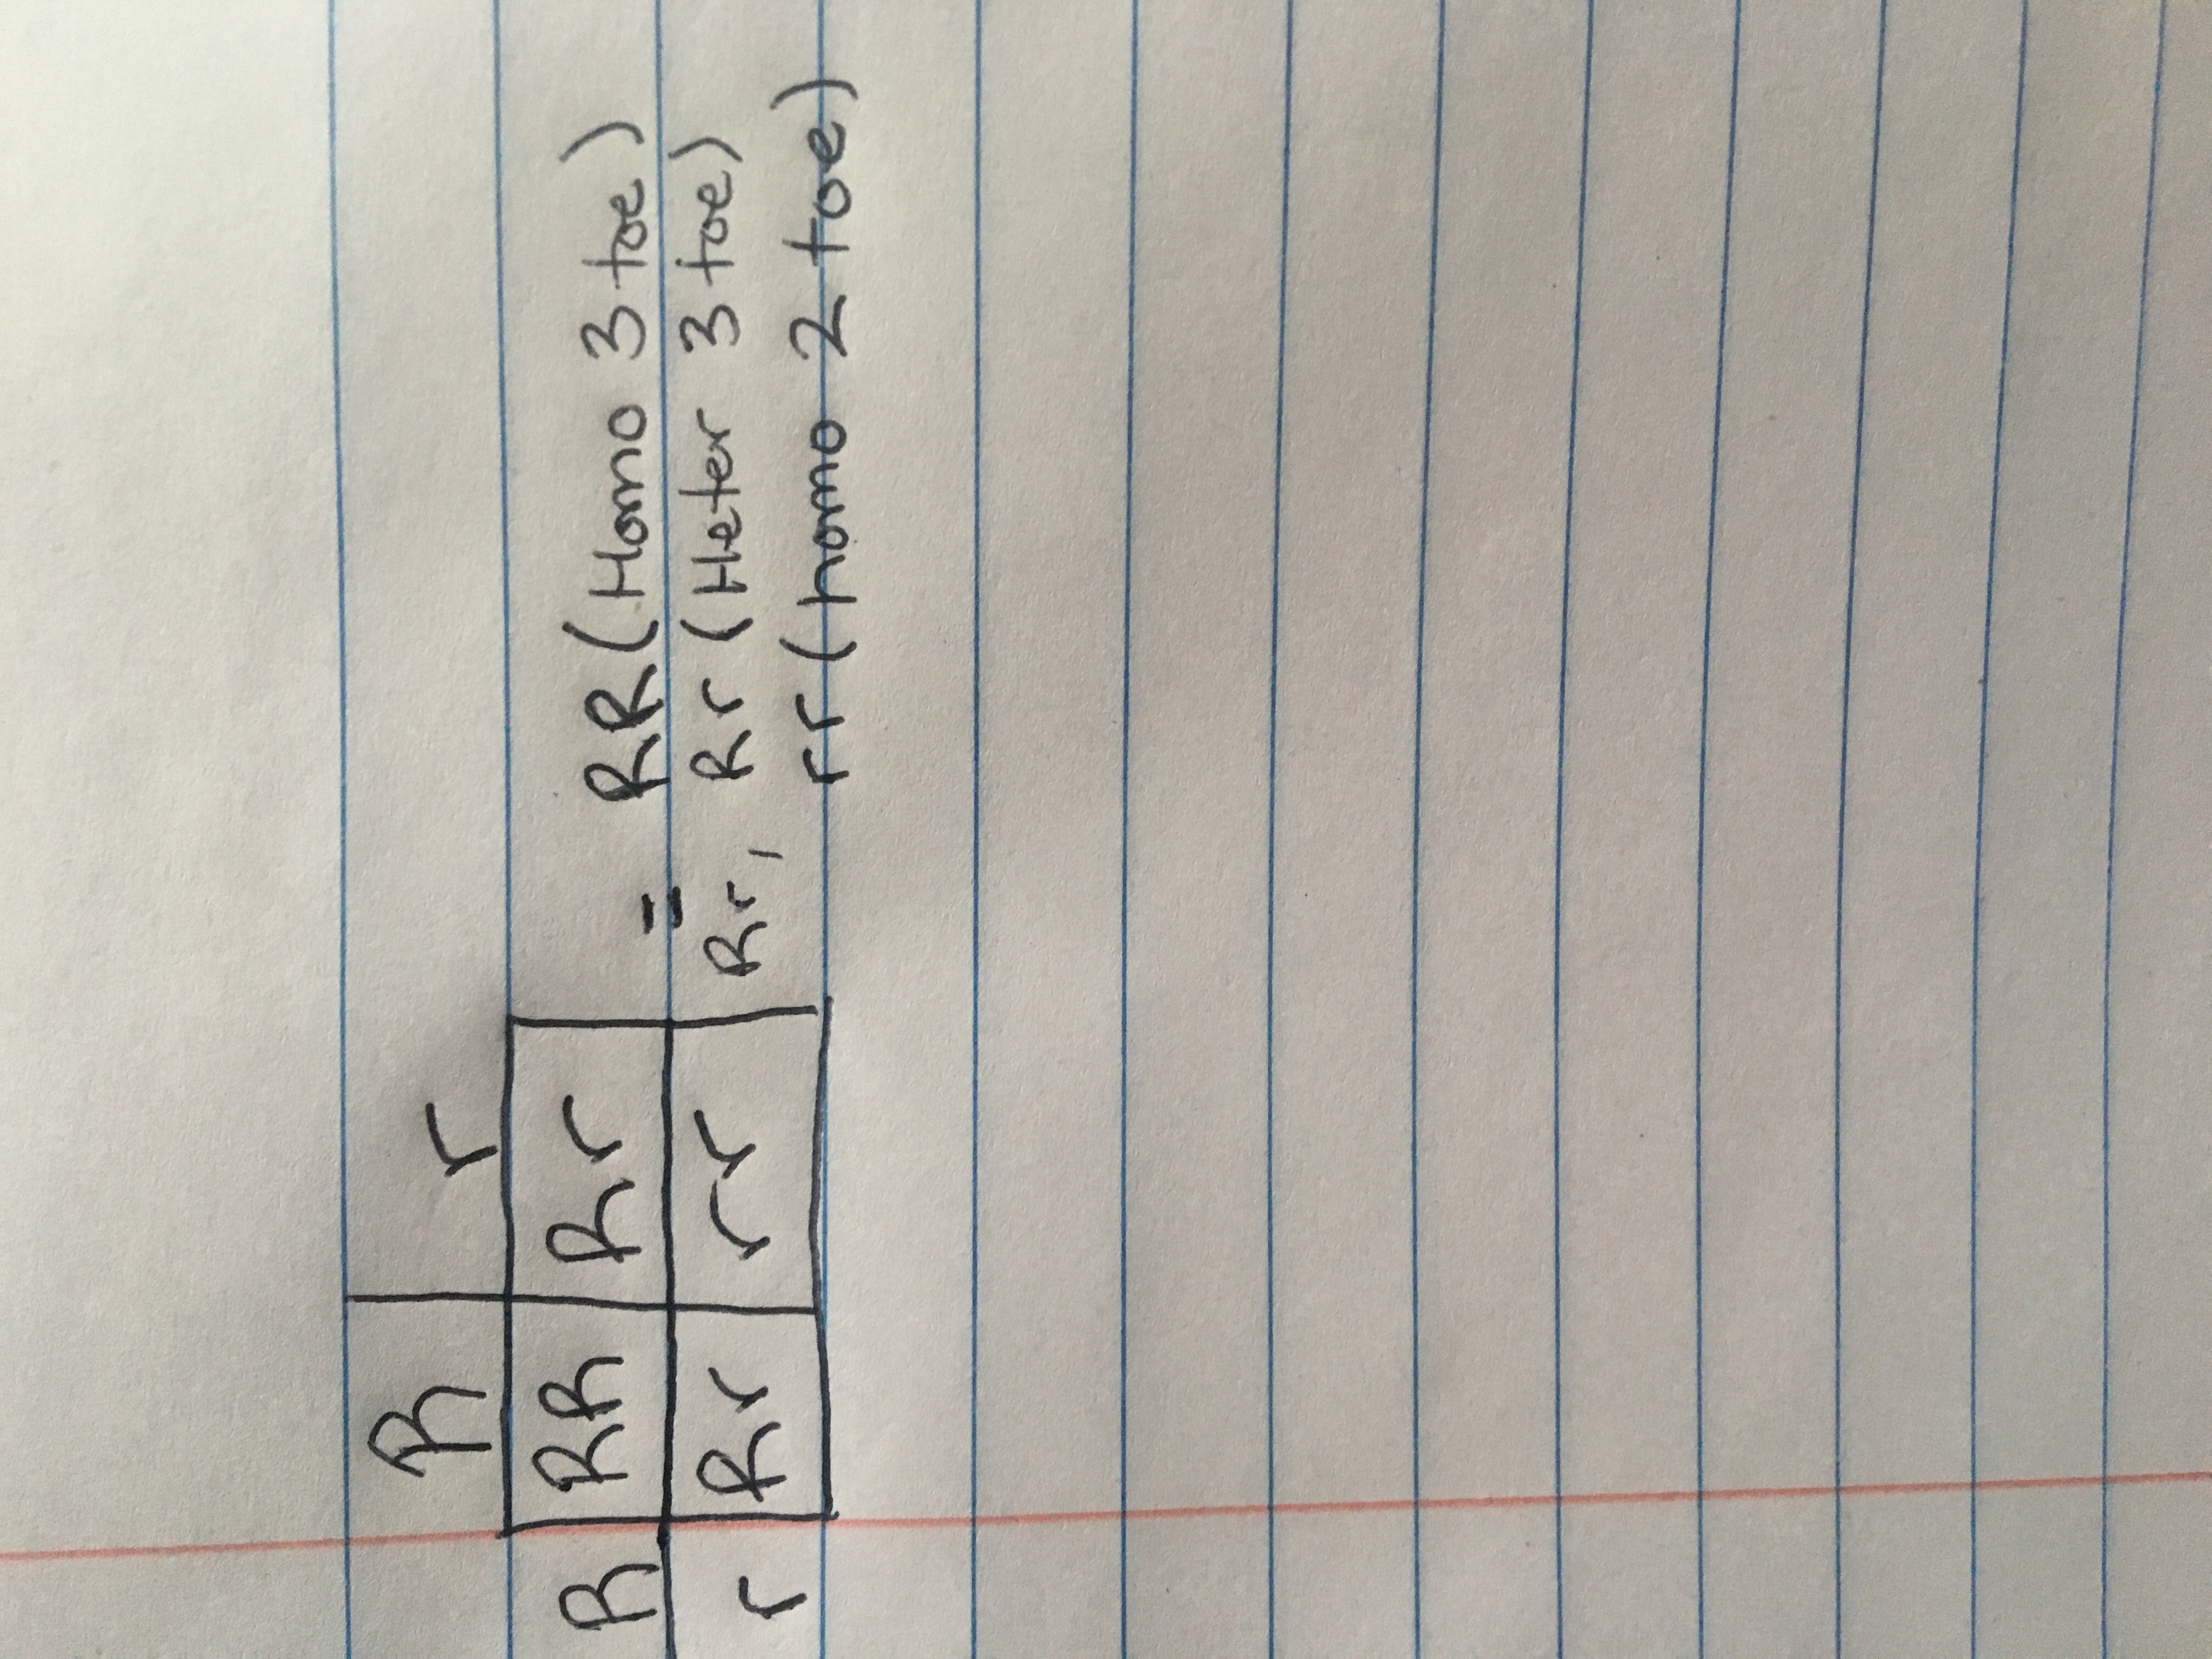 R r
R RR Rr = RR (Homo 3 toe)
r Rr rr Rr, Rr (Heter 3 toe)
rr (homo 2 toe)